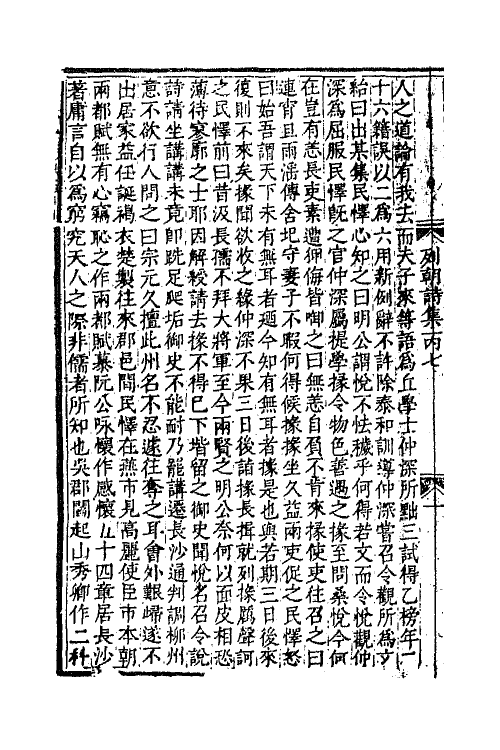 人之道論有我去而夫子來等語爲丘學士仲深所黜三試得乙榜年二
十六籍誤以二爲六用新例辭不許除泰和訓導仲深嘗召令觀所爲文
紿曰出某集民懌心知之曰明公謂悅不怯穢乎何得若文而令悅觀仲
深爲屈服民懌旣之官仲深屬提學掾令物色善遇之掾至問桑悅今何
在豈有恙長吏素遭俾侮皆啣之曰無恙自負不肯來掾使吏往召之曰
連宵旦雨淫傳舍圮守妻子不暇何得候掾掾坐久益兩吏促之民懌怒
曰始吾謂天下未有無耳者廼今知有無耳者掾是也與若期三日後來
復則不來矣掾聞欲收之緣仲深不果三日後詣掾長揖就列掾厲聲訶
之民懌前曰昔汲長孺不拜大將軍至今兩賢之明公奈何以面皮相恐
薄待寥廓之士耶因解綬請去掾不得已下堦留之御史聞悅名召令說
詩請坐講講未竟卽跣足爬垢御史不能耐乃罷講遷長沙通判調柳州
意不欲行人問之曰宗元久擅此州名不忍遽往奪之耳會外艱歸遂不
出居家益任誕褐衣楚製往來郡邑間民懌在燕市見高麗使臣市本朝
兩都賦無有心竊恥之作兩都賦慕阮公咏懷作感懷五十四章居長沙
著庸言自以爲窮究天人之際非儒者所知也吳郡閻起山秀卿作二科
列朝詩集丙七